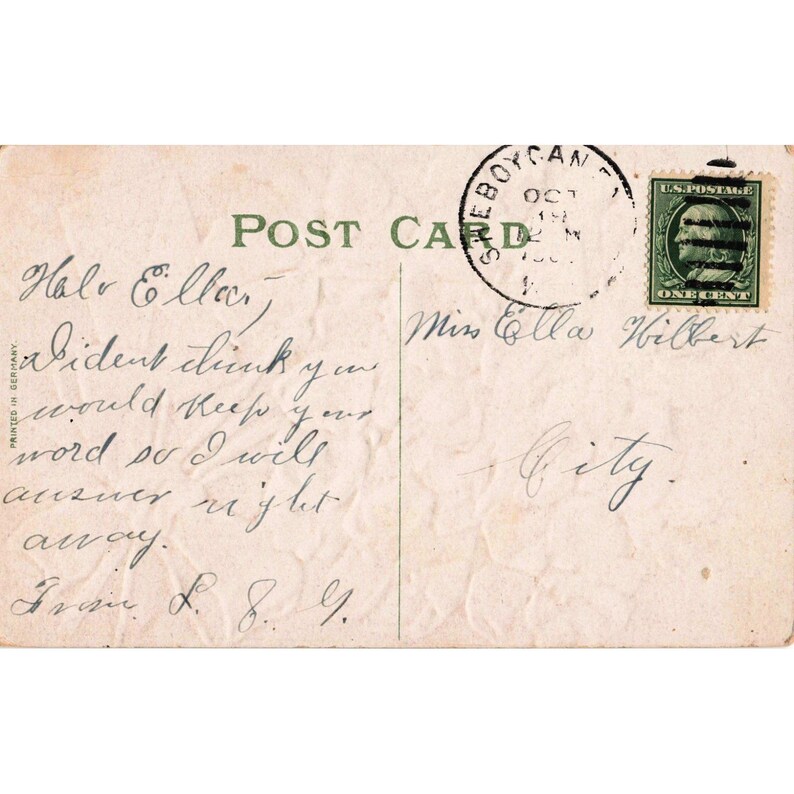 POST CARD
SHEBOYGAN
OCT
U.S. POSTAGE
ONE CENT
PRINTED IN GERMANY.
Halo Ella,
I dident think you
would keep your
word so I will
answer right
away.
From L.
Miss Ella Hilbert
City.